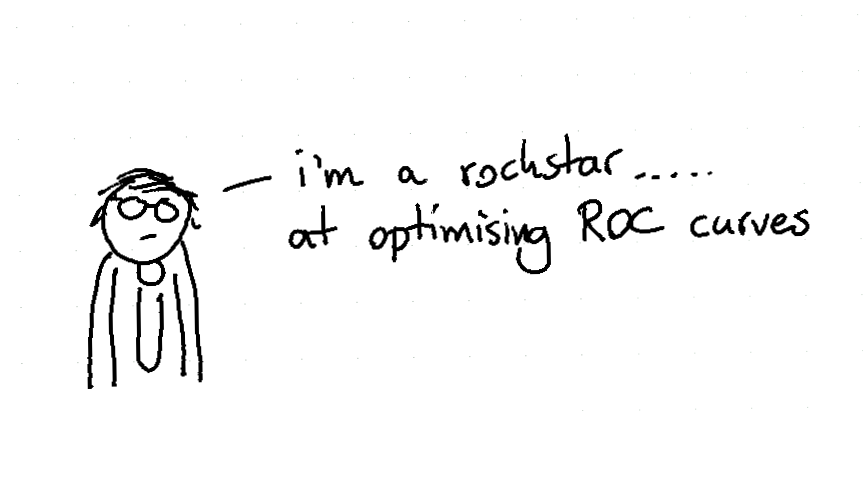 i'm a rockstar.....
at optimising ROC curves